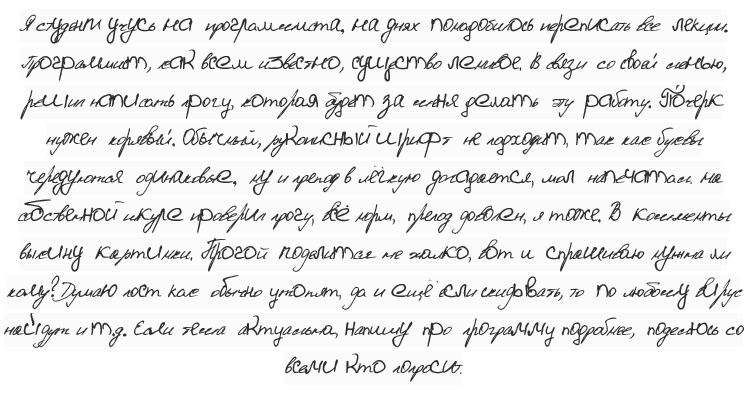 Я студент учусь на программиста, на днях понадобилось переписать все лекции.
Программист, как всем известно, существо ленивое. В связи со своей ленью,
решил написать прогу, которая будет за меня делать эту работу. Почерк
нужен корявый. Обычный, рукописный шрифт не подходит, так как буквы
чередуются одинаковые, ну и препод в лёгкую догадается, мол напечатал. На
собственной шкуре проверил прогу, всё норм, препод доволен, я тоже. В комменты
выкину картинки. Прогой поделиться не жалко, вот и спрашиваю нужна ли
кому? Думаю пост как обычно утопят, да и ещё если скидовать, то по любому вирус
найдут и т.д. Если тема актуальна, напишу про программу подробнее, поделюсь со
всеми кто попросит.